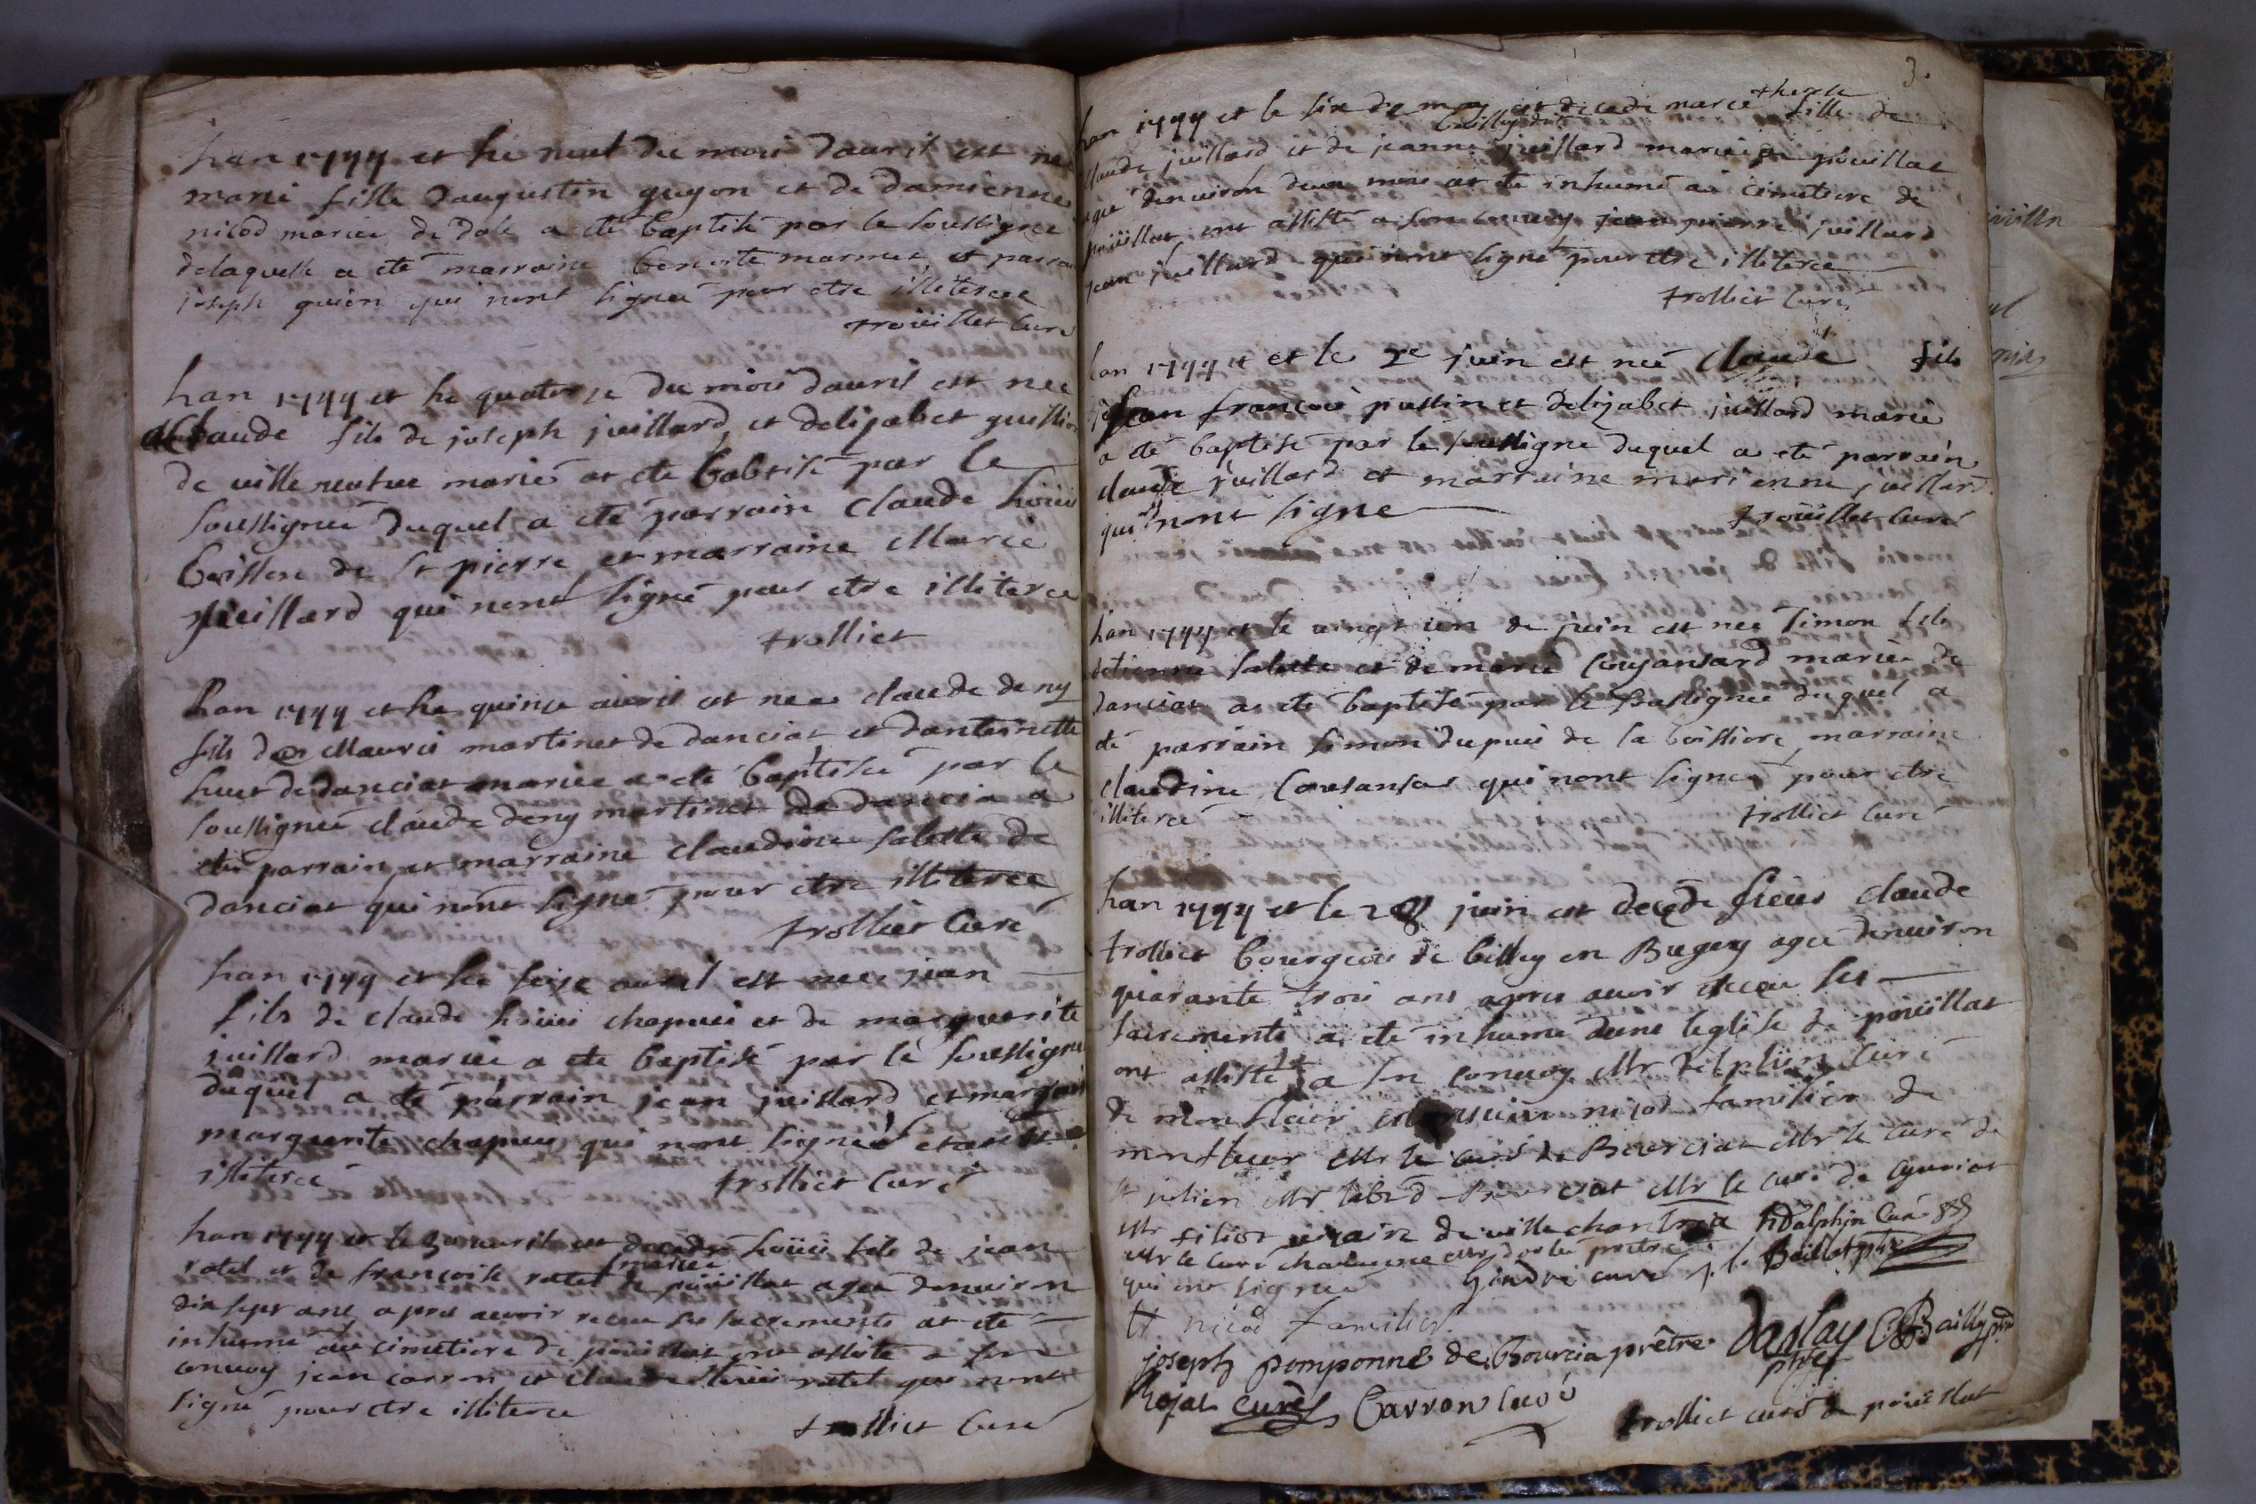 lan 1744 et le neuf du mois davril est née
marie fille daugustin guyon et de damienne
nicod mariée de dole a été baptisé par le soussigné
delaquelle a été marraine benoite marmet et parra
joseph guion qui nont signéé pour etre illiterée
trouillet curé
lan 1744 et le quatorse du mois davril est née
Claude fils de joseph juillard et delisabet guillio
de ville neufue marié at été babtisé par le
soussignée duquel a été parrain claude loüis
boission de st pierre et marraine Marie
juillard qui nont signé pour etre illiterée
trolliet
Lan 1744 et le quinse auril est née claude deny
fils de Mauris martinet de danciat et dantoinette
huet de danciat mariée a été baptisé par le
soussignée claude deny martinet de dancia a
été parrain et marraine claudine salette de
danciat qui nont signé pour etre illiterée
trolliet Curé
lan 1744 et le seise auril est née jean
fils de claude loüis chapuis et de marguerite
juillard mariée a été baptisé par le soussigné
duquel a été parrain jean juillard et marrain
marguerite chapuis qui nont signéé
illiterée trolliet Curé
lan 1744 et le 30 auril est decedé loüis fils de jean
ratel et de françoise ratel mariée de poüillat agée denuiron
dix sept ans apres auoir receu ses sacrements at été
inhumé au cimetiere de poüillat ont assisté a son
conuoy jean carron et claude loüis ratel qui nont
signé pour etre illiterée
trolliet Curé
3.
lan 1744 et le six de may est decedé marie therese fille de
claude juillard et de jeanne juillard mariée de poüillat
agé denuiron deux mois at été inhumé au cimetiere de
poüillat, ont assisté a son conuoy jean pierre juillard
jean juillard qui nont signé pour etre illiterée
trolliet Curé
lan 1744 et le 2e juin est née claude fils
jean françois pullin et delizabet juillard marié
a été baptisé par le soussigné duquel a été parrain
claude juillard et marraine marianne juillard
qui nont signé trouillet Curé
lan 1744 et le vingt un de juin est née simon fils
detienne salette et de marie Cousansard mariée de
danciat a été baptisé par le soussignée duquel a
été parrain simon dupuis de la boissiore marraine
claudine Cousansar qui nont signée pour etre
illiterée trolliet Curé
lan 1744 et le 28 juin est decedé sieur claude
trolliet bourgeois de belley en Bugey agée denuiron
quarante trois ans apres auoir receu ses
sacrements a été inhumé dans leglise de poüillat
ont assisté a son conuoy Mr delphin Curé
de monfleur nicod familier de
monfleur Mr le curé de Bourciat Mr le curé de
st julien Mr labbé Bourciat Mr le curé de
Mr filiot vicaire de ville chantria Dalphin Curé
Mr le curé prêtre
qui ont signée Gindre curé Baillat ptre
nicod familier
joseph pomponne de Bourcia prêtre Daslay ptre Bailly
Rojat curé Carron curé
trolliet curé de poüillat